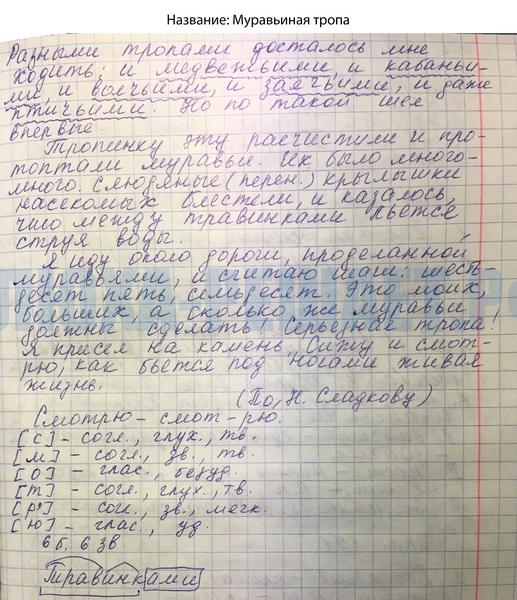 Название: Муравьиная тропа
Разными тропами досталось мне
ходить: и медвежьими, и кабаньи-
ми, и волчьими, и заячьими, и даже
птичьими. Но по такой шел
впервые.
Тропинку эту расчистили и про-
топтали муравьи. Их было много-
много. Слюдяные (перен.) крылышки
насекомых блестели, и казалось,
что между травинками льётся
струя воды.
Я иду около дороги, проделанной
муравьями, и считаю шаги: шесть-
десят пять, семьдесят. Это моих,
больших, а сколько же муравьи
должны сделать! Серьезная тропа!
Я присел на камень. Сижу и смот-
рю, как бьется под ногами живая
жизнь.
(По Н. Сладкову)
Смотрю – смот-рю.
[с] – согл., глух., тв.
[м] – согл., зв., тв.
[о] – глас., безуд.
[т] – согл., глух., тв.
[р'] – согл., зв., мягк.
[ю] – глас., уд.
6 б. 6 зв
Травинками